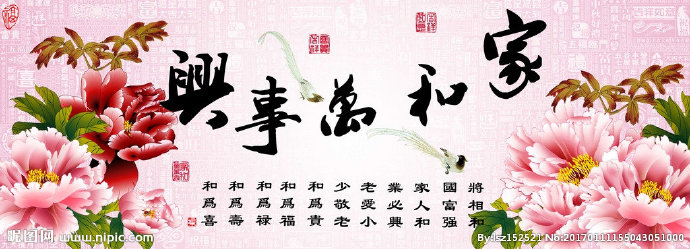 家和萬事興
將相和
國富强
家人和
業必興
老愛小
少敬老
和爲貴
和爲福
和爲禄
和爲壽
和爲喜
昵图网 www.nipic.com
By:sz152521 No:20170111155043051000